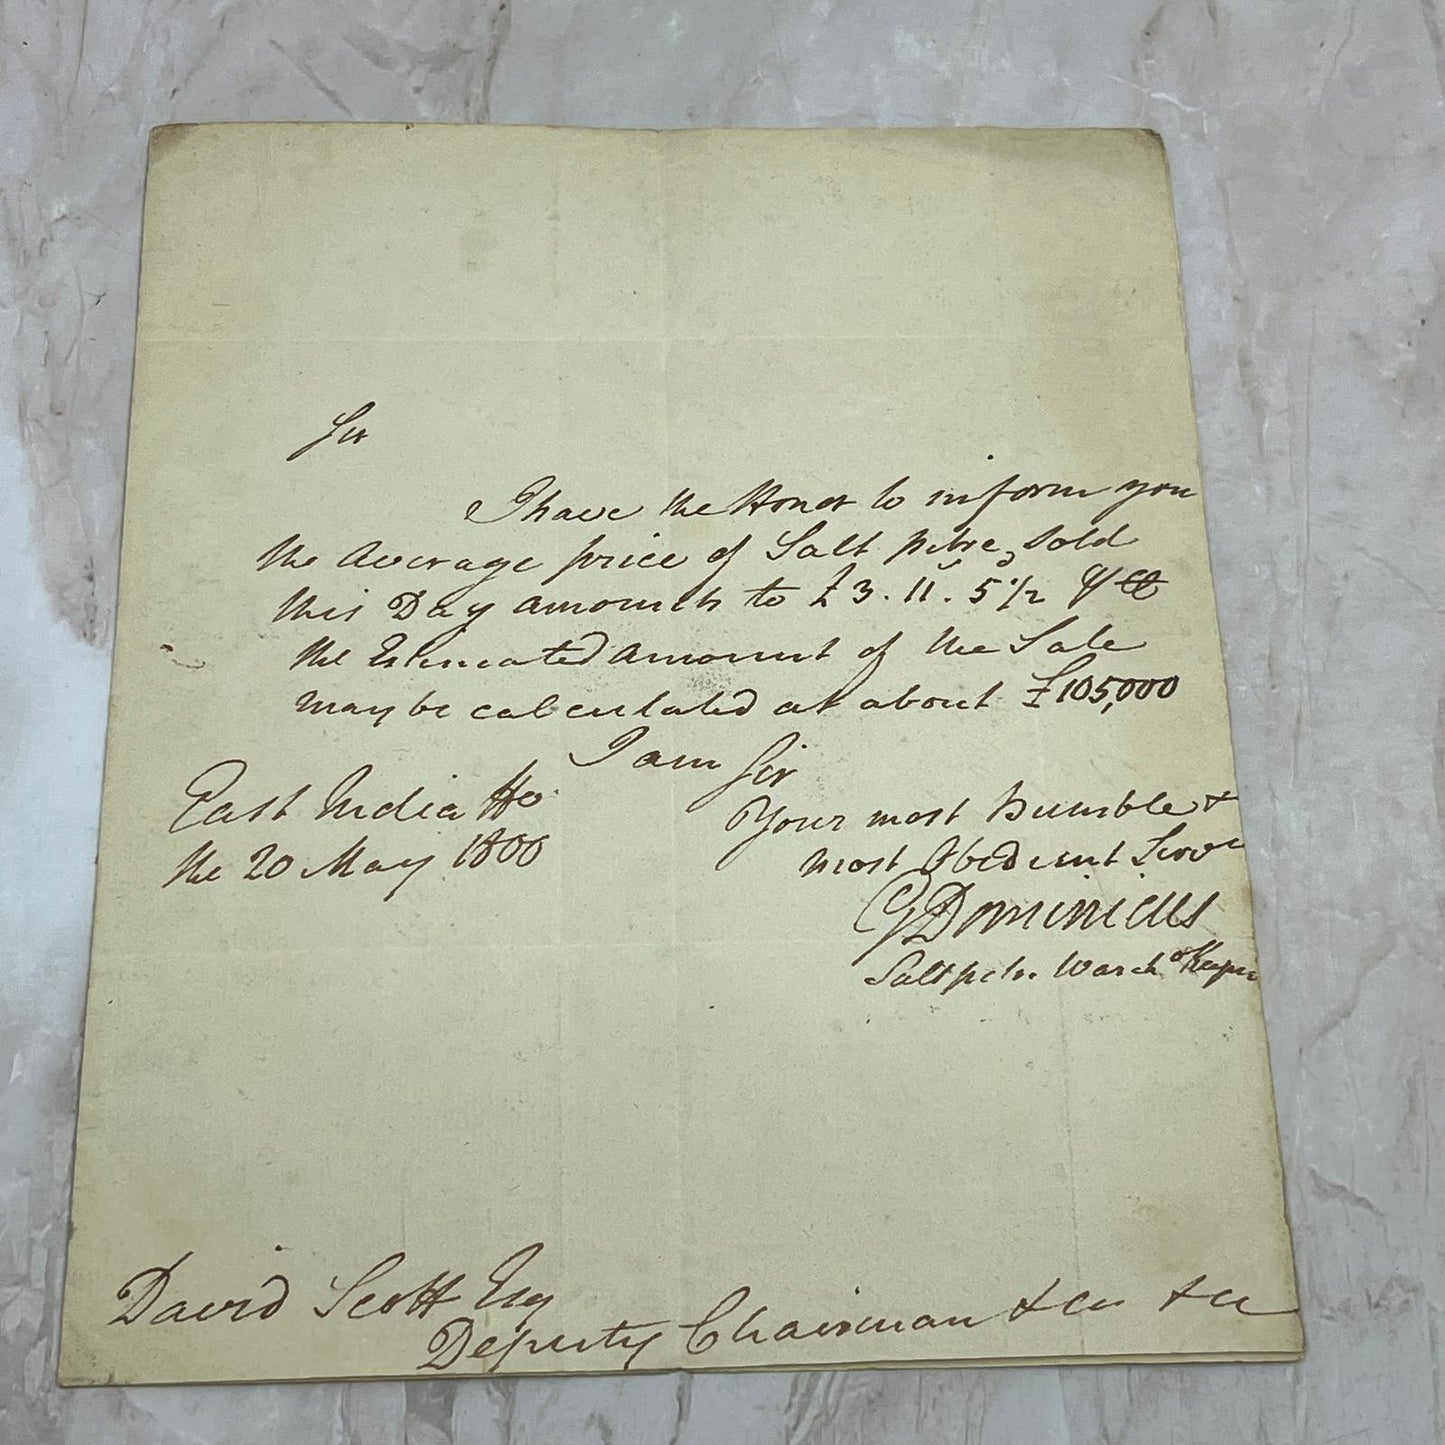 Sir
I have the Honor to inform you
the Average price of Salt petre, Sold
this Day amounts to £3.11.5 1/2 ⅌ Ct
the Estimated Amount of the Sale
may be calculated at about £105,000
I am Sir
Your most Humble &
most Obedient Servt
GDominicus
Saltpetre Wareho Keeper
East India Ho
the 20 May 1800
David Scott Esq
Deputy Chairman &ca &ca